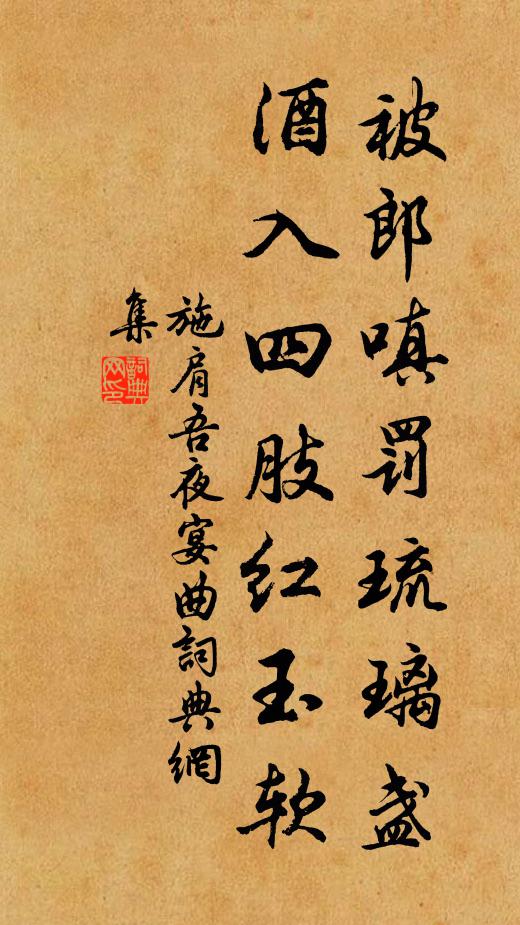 被郎嗔罰琉璃盏
酒入四肢红玉软
施肩吾夜宴曲詞典網
集
詞典
网印